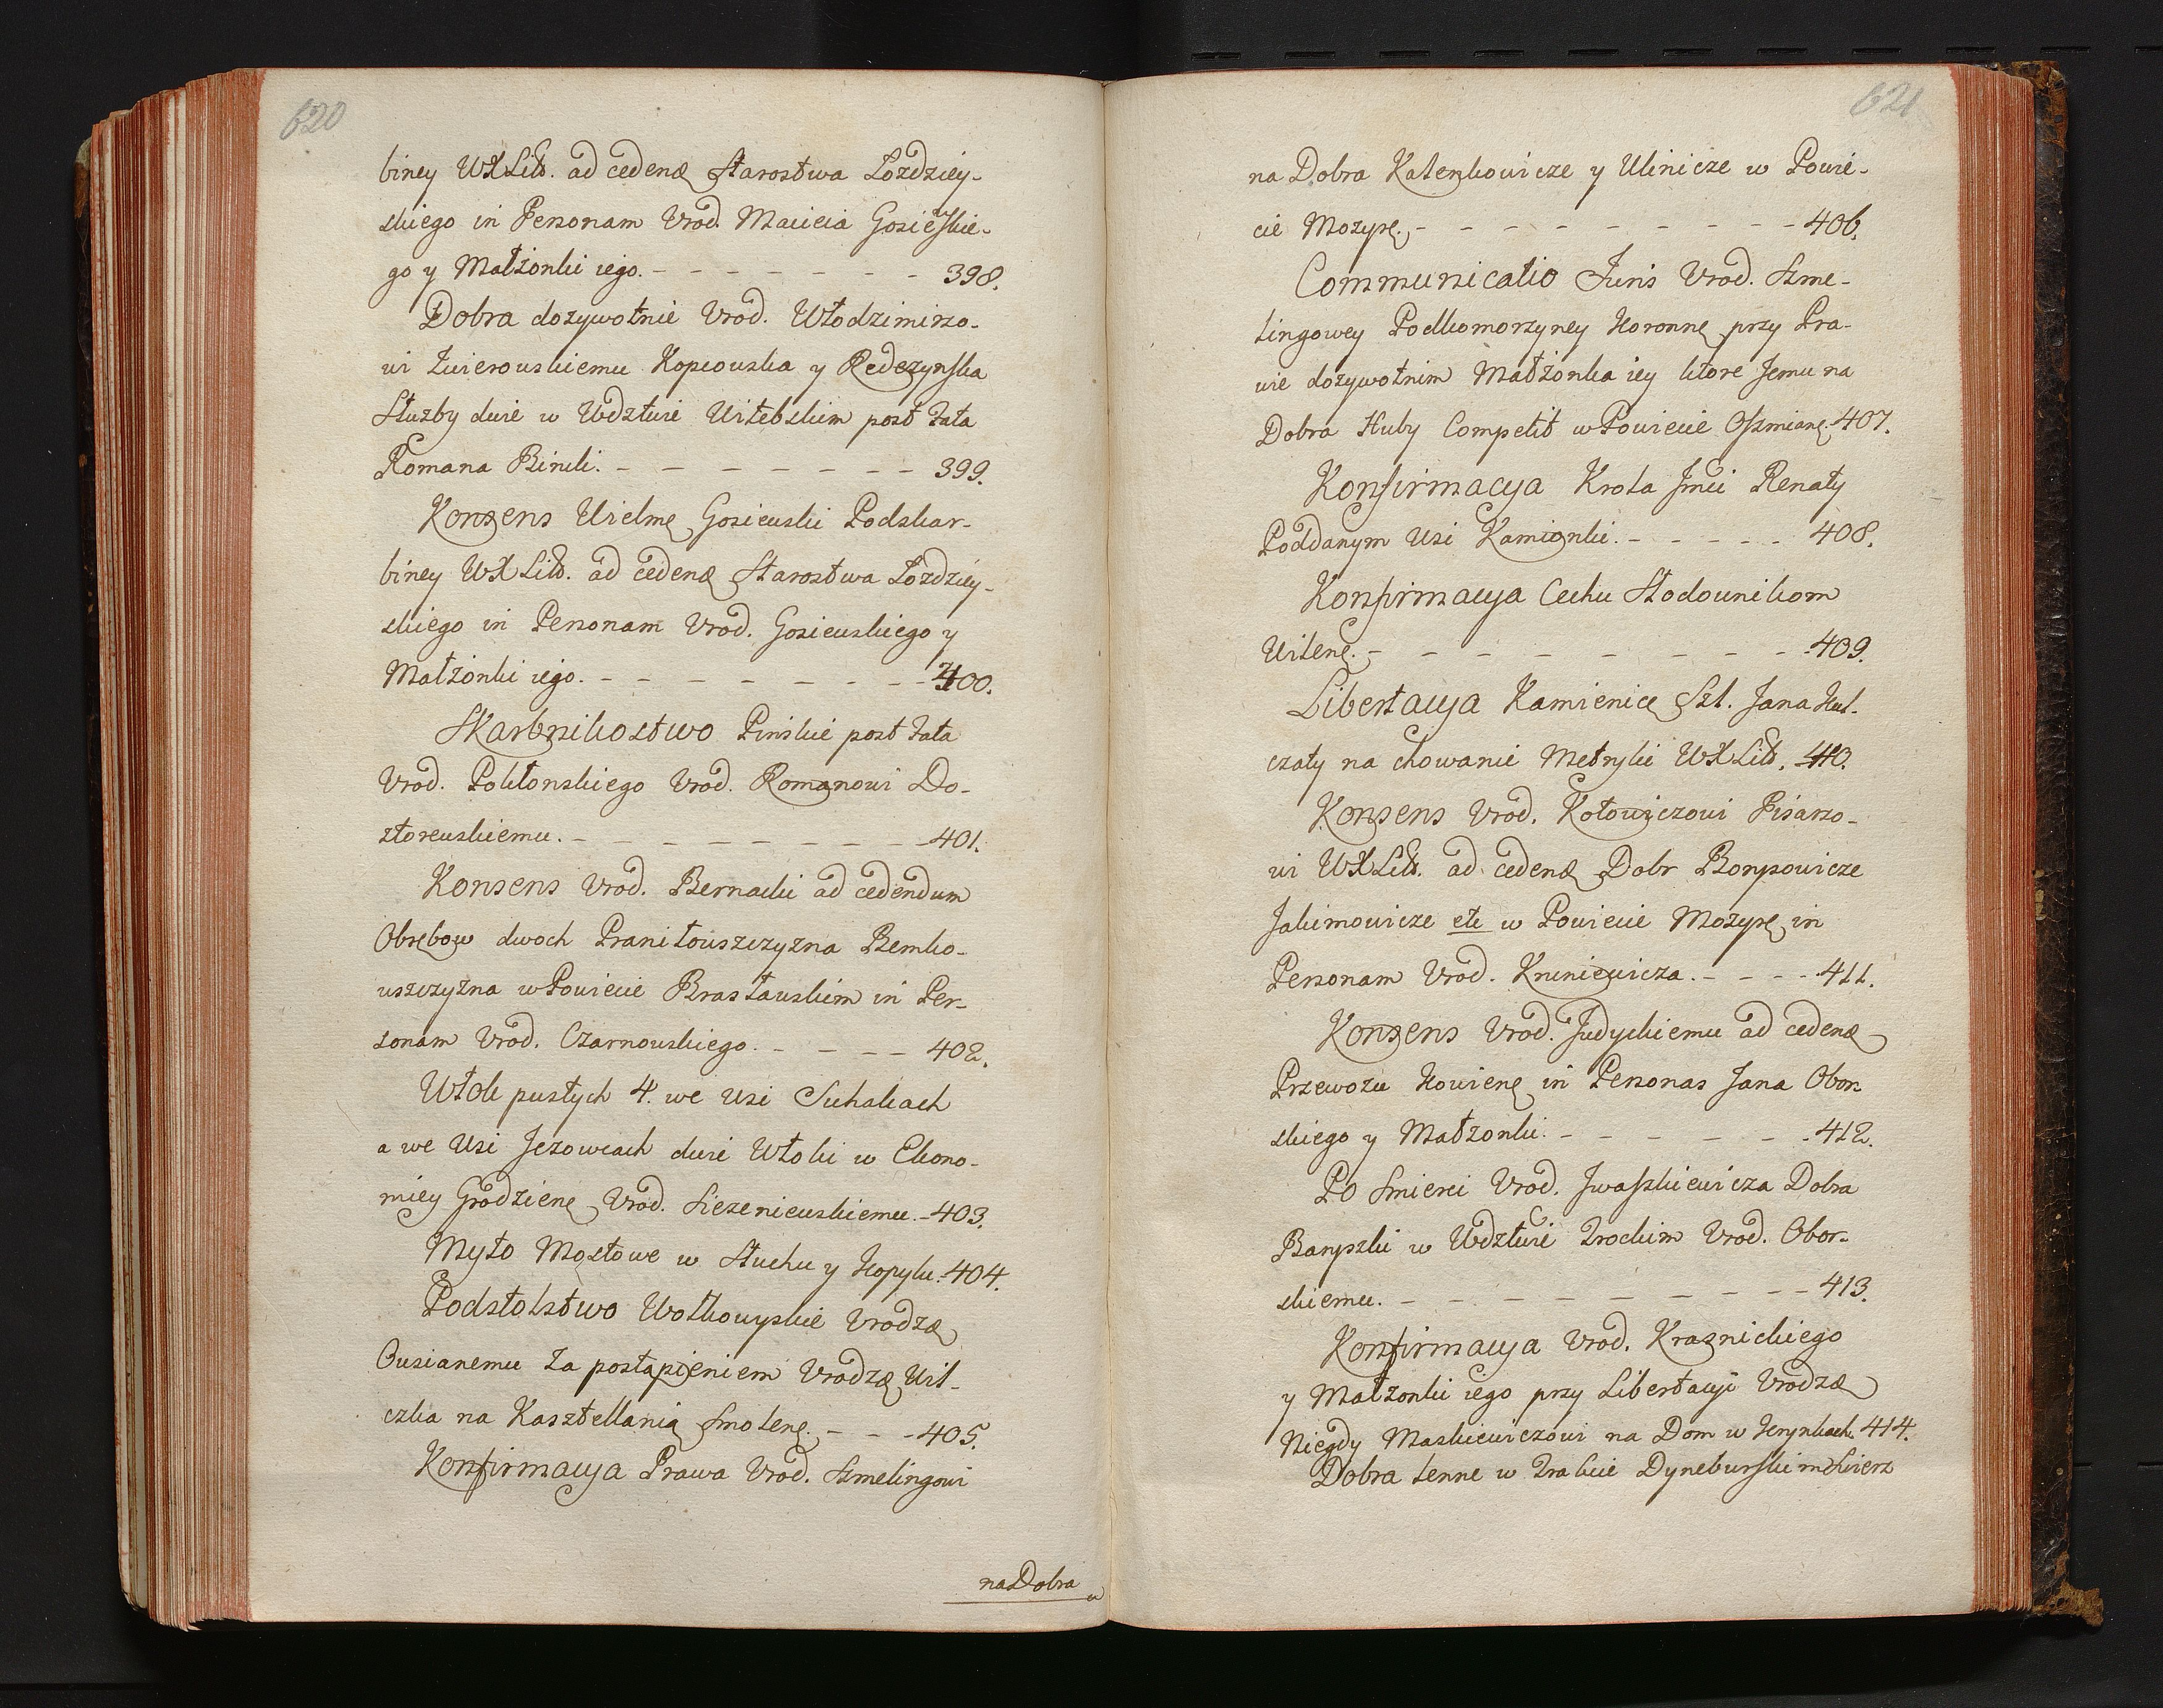 620
biney WXLitt. ad cedenᵭ Starostwa Łozdziey-
skiego in Personam Vrod. Macieia Gosiewskie-
go y Małżonki iego. - - - - - - - 398.
Dobra dozywotnie Vrod. Włodzimirzo-
wi Zwierowskiemu Kopciowska y Redezynska
Służby dwie w Wdztwie Witebskim post fata
Romana Biruli. - - - - - - - 399.
Konsens Wielmę Gosiewski Podskar-
biney WXLitt. ad cedenᵭ Starostwa Łozdziey-
skiego in Personam Vrod. Gosiewskiego y
Małżonki iego. - - - - - - - - 400.
Skarbnikostwo Pinskie post fata
Vrod. Połtonskiego Vrod. Romanowi Do-
storewskiemu. - - - - - - - - 401.
Konsens Vrod. Bernacki ad cedendum
Obrębow dwoch Pranitowszczyzna Bemko-
wszczyzna w Powiecie Brasławskim in Per-
sonam Vrod. Czarnowskiego. - - - - 402.
Włok pustych 4. we Wsi Suhakach
a we Wsi Jezowcach dwie Włoki w Ekono-
miey Grodzienę Vrod. Siezeniewskiemu. - 403.
Myto Mostowe w Słucku y Kopylu. 404.
Podstolstwo Wołkowyskie Vrodzᵭ
Owsianemu za postąpieniem Vrodzᵭ Wil-
czka na Kasztellanią Smolenę. - - - 405.
Konfirmacya Prawa Vrod. Szmelingowi
na Dobra
621
na Dobra Kalenkowicze y Ulinicze w Powie-
cie Mozyrę. - - - - - - - - - 406.
Communicatio Juris Vrod. Szme-
lingowey Podkomorzyney Koronnę przy Pra-
wie dozywotnim Małżonka iey ktore Jemu na
Dobra Huby Competit w Powiecie Oszmianę. 407.
Konfirmacya Krola Jmci Renaty
Poddanym Wsi Kamionki. - - - - - 408.
Konfirmacya Cechu Słodownikom
Wilenę. - - - - - - - - - 409.
Libertacya Kamienicę Szl. Jana Kul-
czaty na chowanie Metryki WXLitt. 410.
Konsens Vrod. Kotowiczowi Pisarzo-
wi WXLitt. ad cedenᵭ Dobr Borysowicze
Jakimowicze etc w Powiecie Mozyrę in
Personam Vrod. Kruniewicza. - - - - 411.
Konsens Vrod. Judyckiemu ad cedenᵭ
Przewozu Kowienę in Personas Jana Obor-
skiego y Małzonki. - - - - - - 412.
Po Smierci Vrod. Jwaszkiewicza Dobra
Baryszki w Wdztwie Trockim Vrod. Obor-
skiemu. - - - - - - - - - 413.
Konfirmacya Vrod. Krasnickiego
y Małzonki iego przy Libertacyi Vrodzᵭ
Niegdy Maskiewiczowi na Dom w Krynkach. 414.
Dobra lenne w Trakcie Dyneburskim